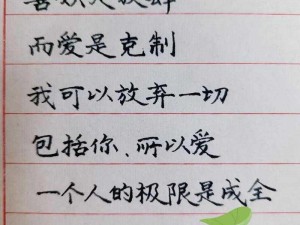 而爱是克制
我可以放弃一切
包括你、所以爱
一个人的极限是成全